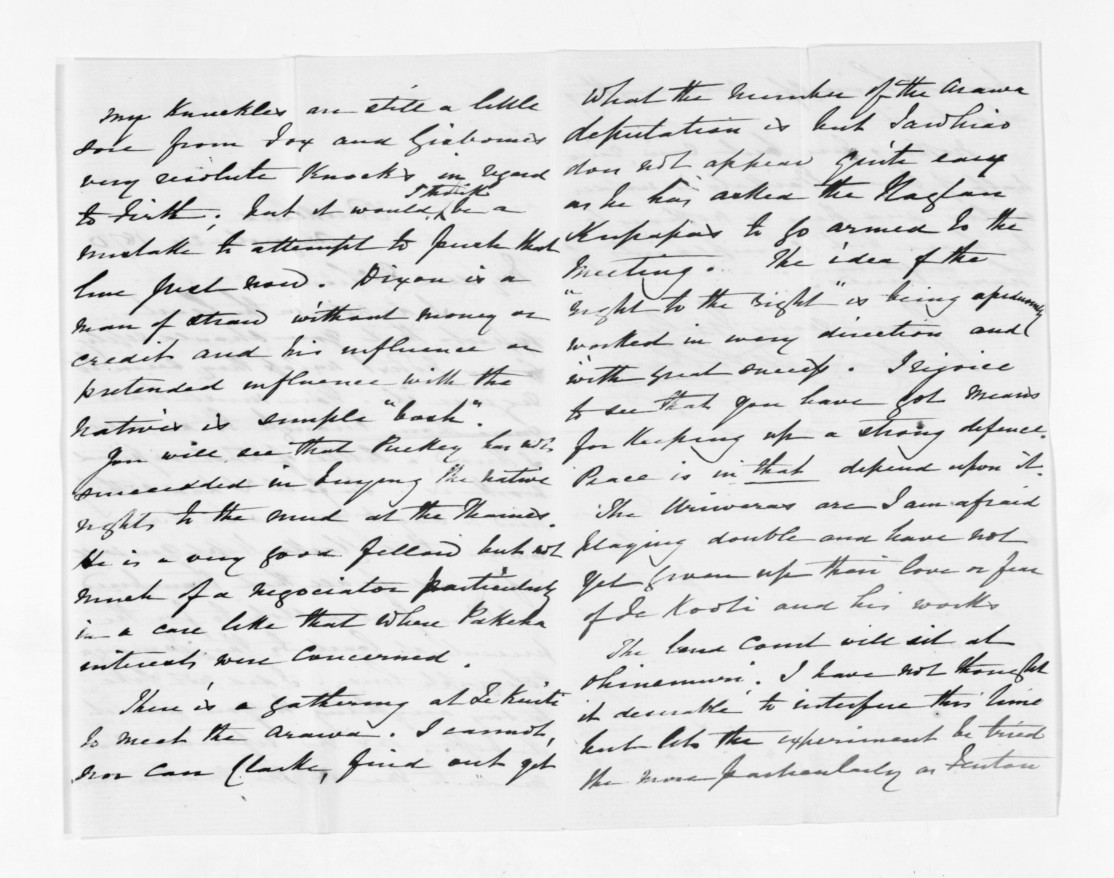 My Knuckles are still a little
sore from Fox and Gisbornes
very resolute Knocks in regard
to Firth; but it would, I think be a
mistake to attempt to push that
line just now. Dixon is a
man of straw without money or
credit and his influence or
pretended influence with the
natives is simple "bosh".
You will see that Puckey has not
succeedded in buying the native
rights to the mud at the Thames.
He is a very good fellow but not
much of a negociator particularly
in a case like that where Pakeha
interests were concerned.
There is a gathering at Te Kuiti
to meet the Arawa. I cannot,
nor can Clarke, find out yet
What the number of the Arawa
deputation is but Tawhiao
does not appear quite easy
as he has asked the Raglan
Kupapas to go armed to the
Meeting. The idea of the
"right to the right" is being
worked in every direction and
with great success. I rejoice
to see that you have got means
for Keeping up a strong defence.
Peace is in that depend upon it.
The Uriweras are I am afraid
playing double and have not
yet given up their love or fear
of Te Kooti and his works
The land Court will sit at
Ohinemuri. I have not thought
it desirable to interfere this time
but lets the experiment be tried
the more particularly as Fenton